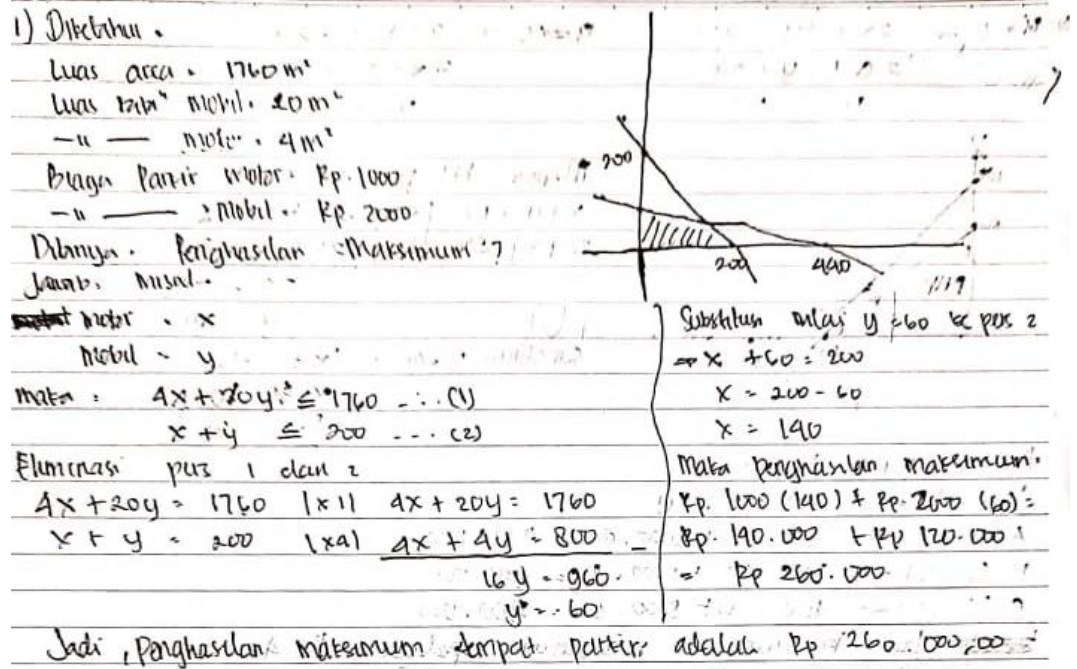 1) Diketahui .
Luas area . 1760 m²
Luas rata" mobil . 20 m²
-"- motor . 4 m²
Biaya Parkir motor . Rp. 1000
-"- mobil . Rp. 2000
Ditanya . Penghasilan maksimum ?
Jawab . misal .
motor . x
mobil - y
maka : 4x + 20y ≤ 1760 - . . (1)
x + y ≤ 200 - - - (2)
Eliminasi pers 1 dan 2
4x + 20y = 1760 |x1| 4x + 20y = 1760
x + y = 200 |x4| 4x + 4y = 800 -
16 y = 960
y = 60
200
200 440
Substitusi nilai y = 60 ke pers 2
⇒ x + 60 = 200
x = 200 - 60
x = 140
maka penghasilan maksimum .
Rp. 1000 (140) + Rp. 2000 (60) =
Rp. 140.000 + Rp 120.000
= Rp 260.000
Jadi , Penghasilan maksimum tempat parkir adalah Rp 260.000,00